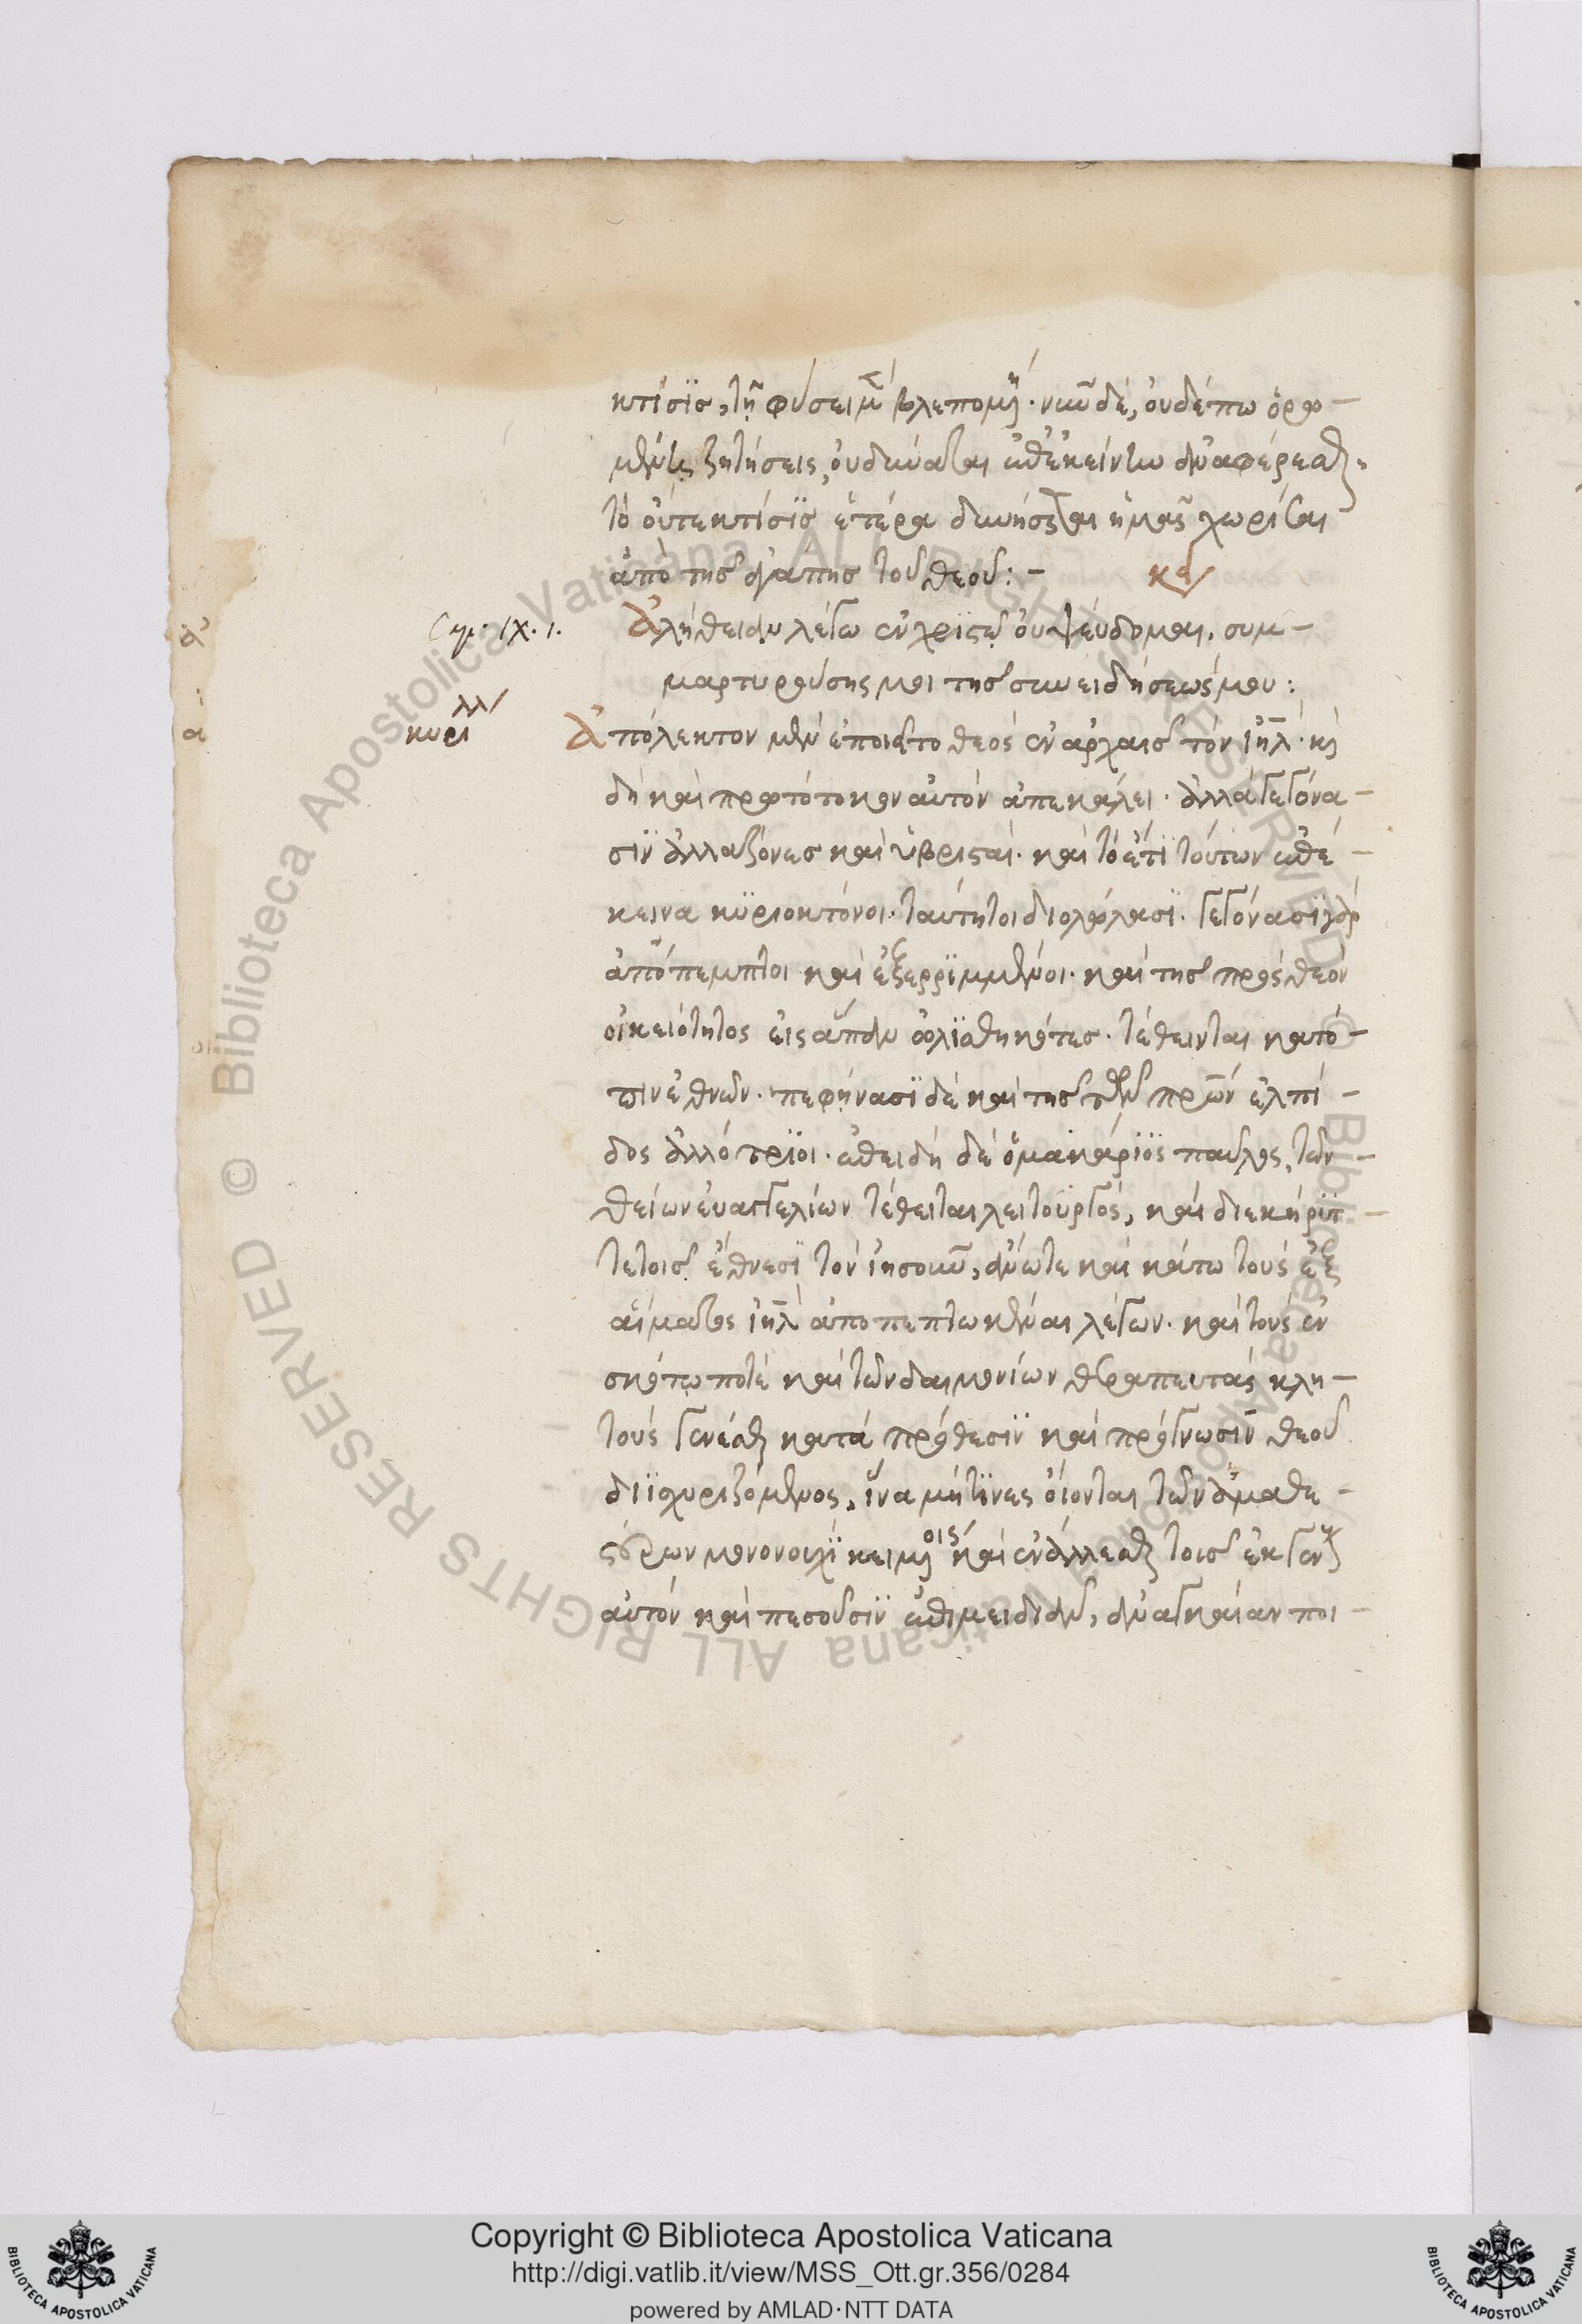 κτίσϊς, τῇ φύσει μὲν βλεπομένη· νῦν δὲ, οὐδέπω ὁρω-
μένης ζητήσεις, οὐ δύναται ἐπέκείνω ἀναφέρεσθαι,
τὸ οὔτε κτίσϊς ἑτέρα δυνήσεται ἡμᾶς χωρίσαι
ἀπὸ τῆς ἀγάπης τοῦ θεοῦ:-
κδ
Cap. IX. 1.
Ἀλήθειαν λέγω ἐν χρϊστῷ οὐ ψεύδομαι, συμ-
μαρτυρούσης μοι τῆς συνειδήσεώς μου:
κυρίλλ
Ἀπόλεκτον μὲν ἐποιεῖτο θεὸς ἐν ἀρχαῖς τὸν ἰηλ· καὶ
δὴ καὶ πρωτότοκον αὐτὸν ἀπεκάλει· ἀλλὰ γεγόνα-
σϊν ἀλλαζόνες καὶ ὑβρισταί· καὶ τὸ ἔτϊ τούτων ἐπέ-
κεινα κϋριοκτόνοι· ταύτητοι διολώλασϊ· γεγόνασϊ γὰρ
ἀπόπεμπτοι καὶ ἐξερρϊμμένοι· καὶ τῆς πρὸς θεὸν
οἰκειότητος εἰς ἅπαν ὠλϊσθηκότες· τέθεινται κατό-
πιν ἐθνῶν· πεφήνασϊ δὲ καὶ τῆς τῶν πρων ἐλπί-
δος ἀλλότρϊοι· ἐπειδὴ δὲ ὁ μακάρϊος παῦλος, τῶν
θείων εὐαγγελίων τέθειται λειτουργός, καὶ διεκήρϋτ
τε τοῖς ἔθνεσϊ τὸν ἰησοῦν, ἄνω τε καὶ κάτω τοὺς ἐξ
αἵματος ἰηλ ἀποπεπτωκέναι λέγων· καὶ τοὺς ἐν
σκότῳ ποτὲ καὶ τῶν δαιμονίων θεραπευτὰς κλη-
τοὺς γενέσθαι κατὰ πρόθεσϊν καὶ πρόγνωσϊν θεοῦ
διϊσχυριζόμενος, ἵνα μή τϊνες οἴονται τῶν ἀμαθε-
στέρων μονονουχϊ κειμένοις καὶ ἐνάλλεσθαι τοῖς ἐκ γένους
αὐτὸν καὶ πεσοῦσϊν ἐπιμειδιᾶν, ἀναγκαίαν ποι-